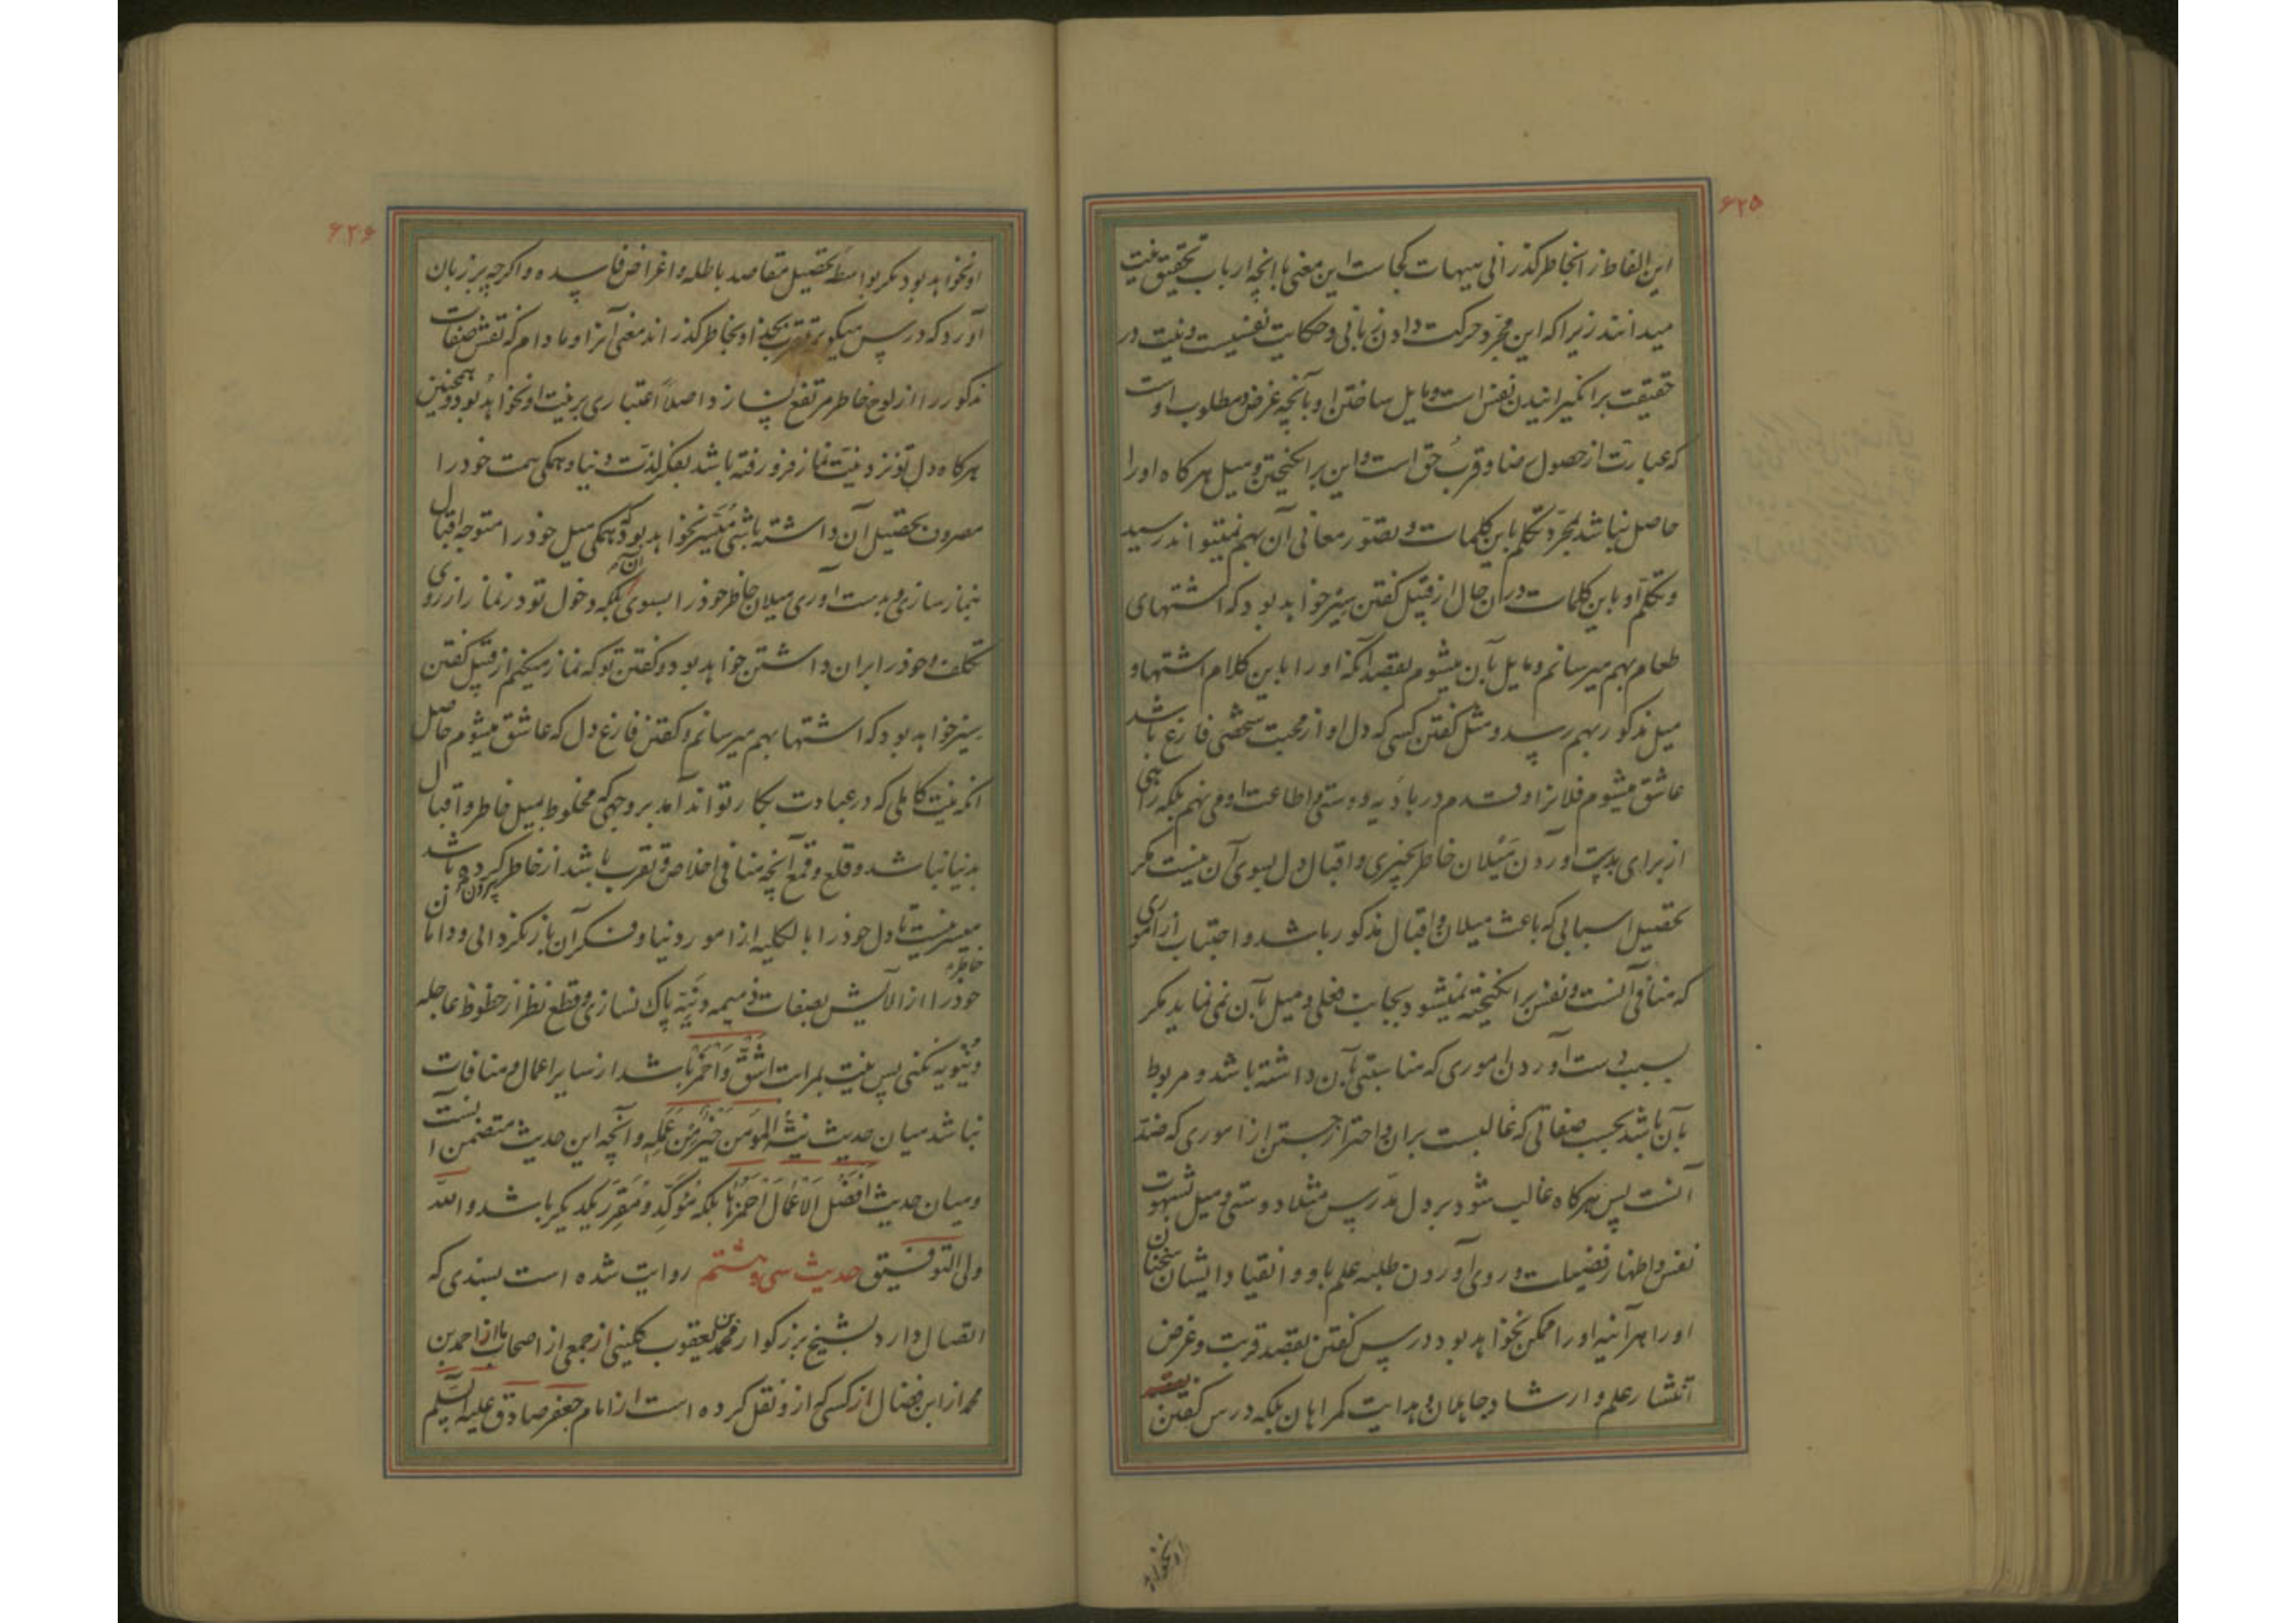 ۶۲۵
این الفاظ را بخاطر گذرانی هیهات کجاست این معنی با انچه ارباب تحقیق نیت
میدانند زیرا که این مجرد حرکت دادن زبانی و حکایت نفسیست و نیت در
حقیقت برانگیزانیدن نفس است و مایل ساختن او بآنچه غرض و مطلوب اوست
که عبارت از حصول رضا و قرب حق است و این برانگیختن و میل هرگاه او را
حاصل نباشد بمجرد تکلم باین کلمات و تصور معانی آن بهم نمیتواند رسید
و تکلم او باین کلمات در آن حال از قبیل گفتن سیر خواهد بود که اشتهای
طعام بهم میرسانم و مایل بآن میشوم بقصد آنکه او را باین کلام اشتها و
میل مذکور بهم رسد و مثل گفتن کسی که دل او از محبت شخصی فارغ باشد
عاشق میشوم فلانرا و قدم در بادیه دوستی و اطاعت او می نهم بلکه راهی
از برای بدست آوردن میلان خاطر بچیزی و اقبال دل بسوی آن نیست مگر
تحصیل اسبابی که باعث میلان و اقبال مذکور باشد و اجتناب از اموری
که منافی آنست و نفس برانگیخته نمیشود بجانب فعلی و میل بآن نمی نماید مگر
بسبب بدست آوردن اموری که مناسبتی بآن داشته باشد و مربوط
بآن باشد بحسب صفاتی که غالبست بران و احتراز جستن از اموری که ضد
آنست پس هرگاه غالب شود بر دل مدرس مثلا دوستی و میل شهوت
نفس و اظهار فضیلت و روی آوردن طلبه علم باو و انقیاد ایشان سخنان
او را هرآینه او را ممکن نخواهد بود درس گفتن بقصد قربت و غرض
انتشار علم و ارشاد جاهلان و هدایت گمراهان بلکه درس گفتن
او نخواهد
۶۲۶
او نخواهد بود مگر بواسطه تحصیل مقاصد باطله و اغراض فاسده و اگرچه بر زبان
آورد که درس میگویم تقرب بخدا و بخاطر گذراند معنی آنرا و مادام که نفس صفات
مذکور را از لوح خاطر مرتفع نسازد اصلاً اعتباری بر نیت او نخواهد بود و همچنین
هرگاه دل تو نزد نیت نماز فرو رفته باشد بفکر لذت دنیا و همگی همت خود را
مصروف بتحصیل آن داشته باشی میسر نخواهد بود که همگی میل خود را متوجه اقبال
بنماز سازی و بدست آوری میلان خاطر خود را بسوی آن بلکه دخول تو در نماز از روی
تکلف و خود را بران داشتن خواهد بود و گفتن تو که نماز میکنم از قبیل گفتن
سیر خواهد بود که اشتها بهم میرسانم و گفتن فارغ دل که عاشق میشوم حاصل
انکه نیت کاملی که در عبادت بکار تواند آمد بر وجهی که مخلوط بمیل خاطر و اقبال
بدنیا نباشد و قلع و قمع آنچه منافی اخلاص و تقرب باشد از خاطر کرده باشد
میسر نیست تا دل خود را بالکلیه از امور دنیا و فکر آن باز نگردانی و دامان
خاطر
خود را از آلایش بصفات ذمیمه دنیه پاک نسازی و قطع نظر از حظوظ عاجله
دنیویه نکنی پس نیت بمراتب اشق و احمز باشد از سایر اعمال و منافات
نباشد میان حدیث نیة المؤمن خیر من عمله و آنچه این حدیث متضمن انست
و میان حدیث افضل الاعمال احمزها بلکه مؤکد و مقرر یکدیگر باشد و الله
ولی التوفیق حدیث سی و هشتم روایت شده است بسندی که
اتصال دارد بشیخ بزرگوار محمد بن یعقوب کلینی از جمعی از اصحاب ما از احمد بن
محمد از ابن فضال از کسی که از و نقل کرده است از امام جعفر صادق علیه السلم